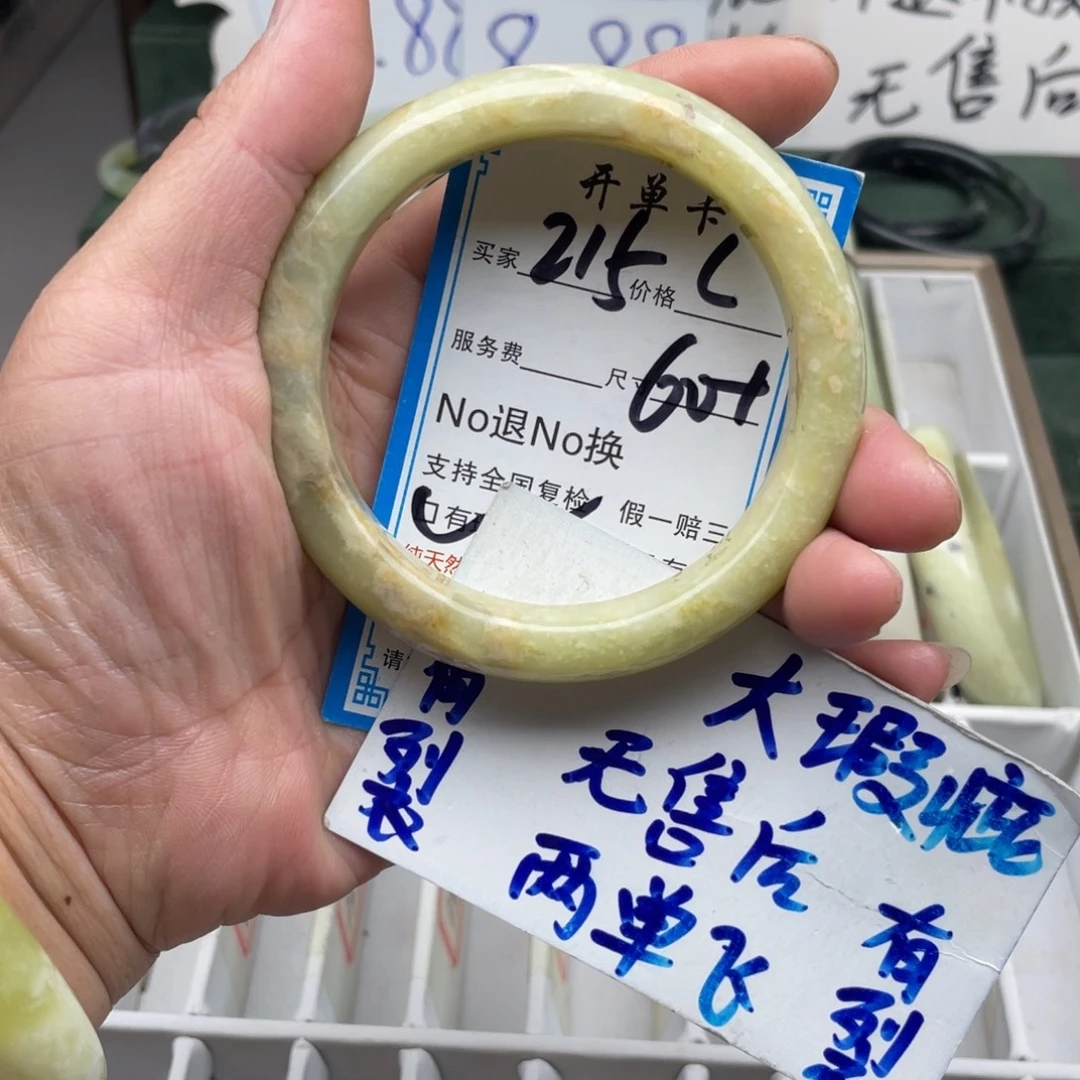 8.88
无售后
开单卡
买家 215 价格 C
服务费 尺寸 60+
No退No换
支持全国复检 假一赔三
口有
纯天然
请
有裂
大瑕疵
无售后
两单飞
有裂